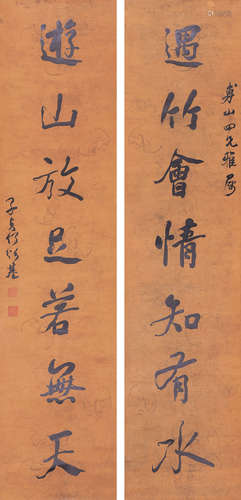 山四兄雅屬
遇竹會情知有水
遊山放足若無天
子貞何紹基